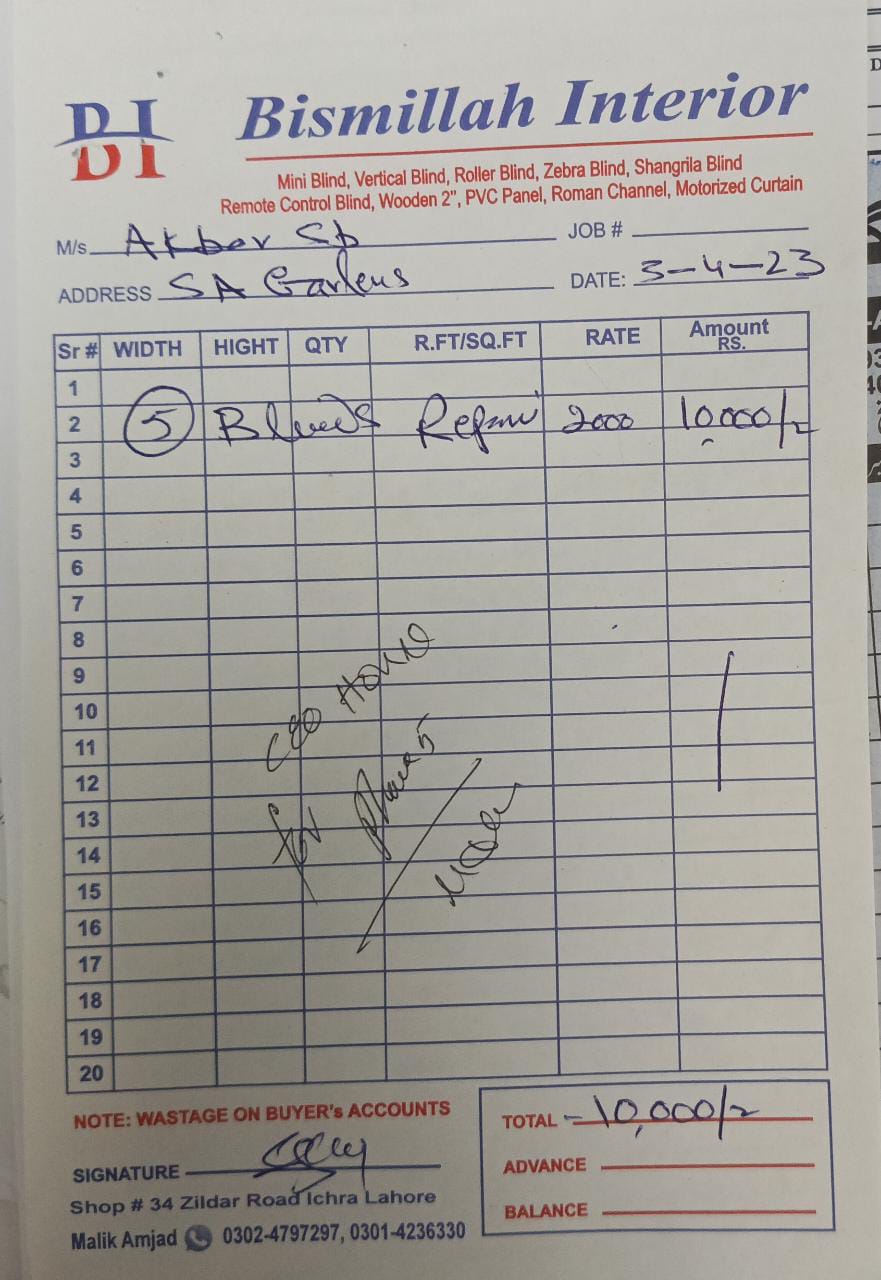 BI
Bismillah Interior
Mini Blind, Vertical Blind, Roller Blind, Zebra Blind, Shangrila Blind
Remote Control Blind, Wooden 2", PVC Panel, Roman Channel, Motorized Curtain
M/s Akber Sb JOB #
ADDRESS SA Gardens DATE: 3-4-23
Sr # WIDTH HIGHT QTY R.FT/SQ.FT RATE Amount RS.
1
2 5 Blinds Repair 2000 10,000/-
3
4
5
6
7
8
9
10
11
12
13
14
15
16
17
18
19
20
CEO House
for Phase 5
NOTE: WASTAGE ON BUYER's ACCOUNTS
SIGNATURE
Shop # 34 Zildar Road Ichra Lahore
Malik Amjad 0302-4797297, 0301-4236330
TOTAL 10,000/-
ADVANCE
BALANCE